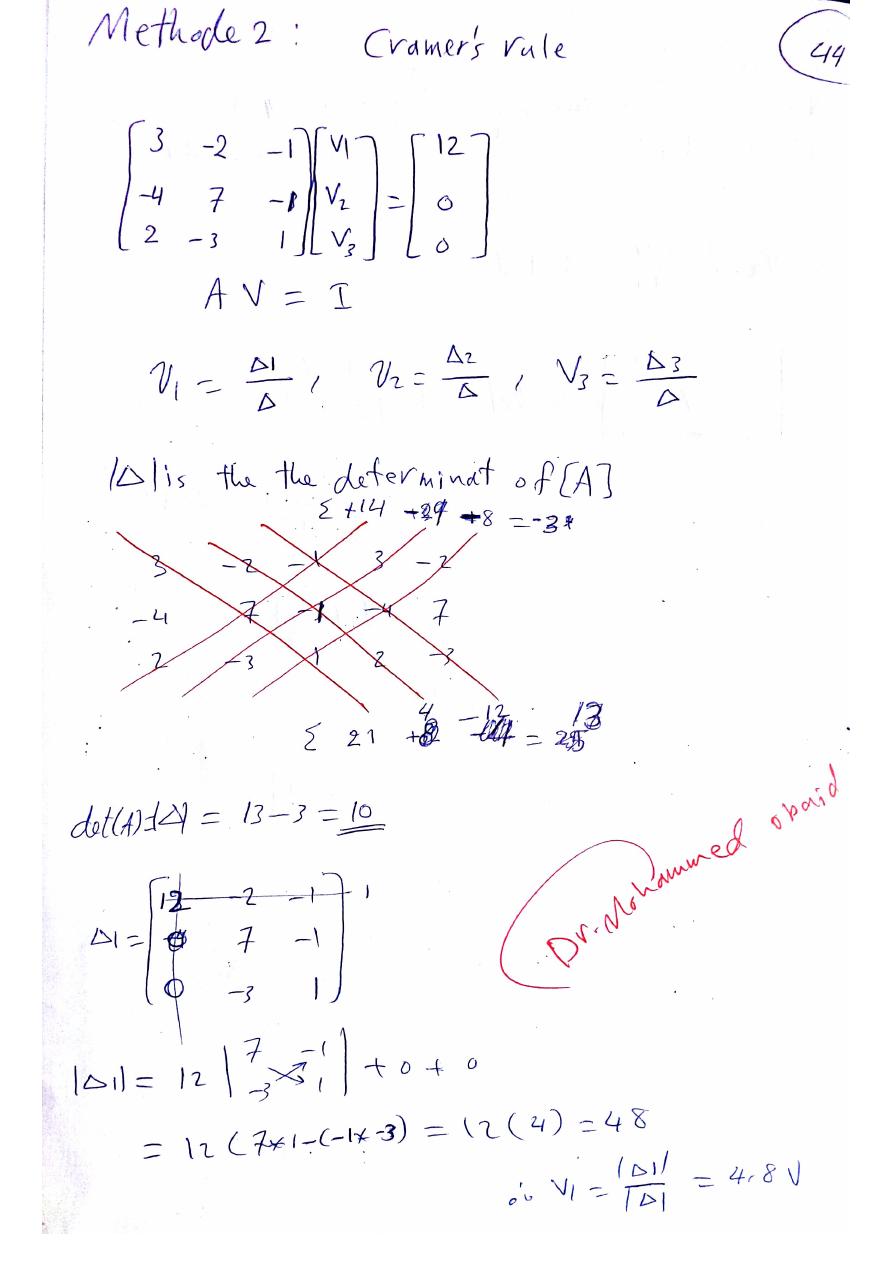 Methode 2 : Cramer's rule 44
[3 -2 -1] [V1] = [12]
[-4 7 -1] [V2] [0]
[2 -3 1] [V3] [0]
A V = I
V1 = Δ1/Δ , V2 = Δ2/Δ , V3 = Δ3/Δ
|Δ| is the the determinat of [A]
Σ +14 +8 = -3
3 -2 -1 3 -2
-4 7 -1 -4 7
2 -3 1 2 -3
Σ 21 4 -12 = 13
det(A)=|Δ| = 13 - 3 = 10
Δ1 = [12 -2 -1] 1
[0 7 -1]
[0 -3 1]
Dr. Mohammed obaid
|Δ1| = 12 |7 -1| + 0 + 0
|-3 1|
= 12 (7*1-(-1*-3) = 12 (4) = 48
∴ V1 = |Δ1|/|Δ| = 4.8 V